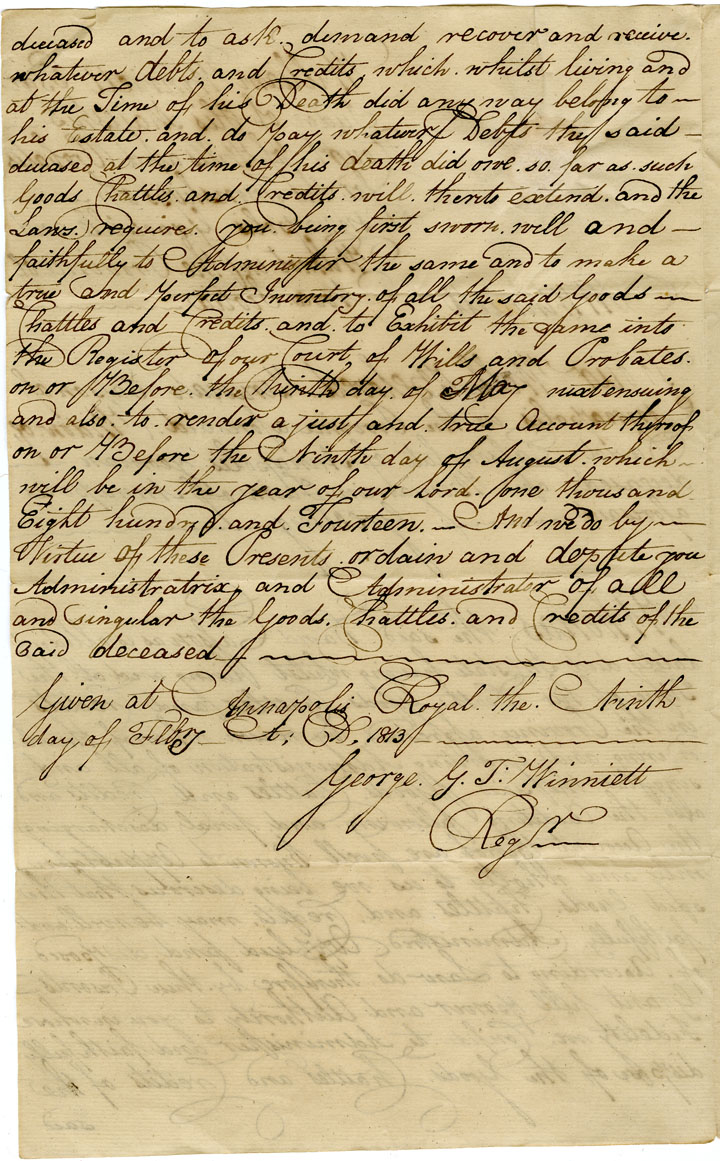 deceased and to ask. demand recover and receive.
whatever debts. and Credits which. whilst living and
at the Time of his Death did any way belong to —
his Estate. and. do pay whatever Debts the said —
deceased at the time of his death did owe. so. far as. such
Goods Chattles. and. Credits. will. thereto extend. and the
Laws. requires. you. being first sworn. will and —
faithfully to Administer the same and to make a
true and perfect Inventory. of all the said Goods —
Chattles and Credits. and. to Exhibit the same into
the Register of our Court of Wills and Probates.
on or Before. the Ninth day. of May next ensuing
and also. to. render a just and. true Account thereof
on or Before the Ninth day of August. which —
will be in the year of our Lord. one thousand
Eight hundred. and. Fourteen. — And we do by —
Virtue of these Presents. ordain and depute you
Administratrix, and Administrator of all
and singular the Goods. Chattles. and Credits of the
said deceased
Given at Annapolis Royal. the. Ninth
day of Febry A; D, 1813
George. G. T. Winniett
Regr